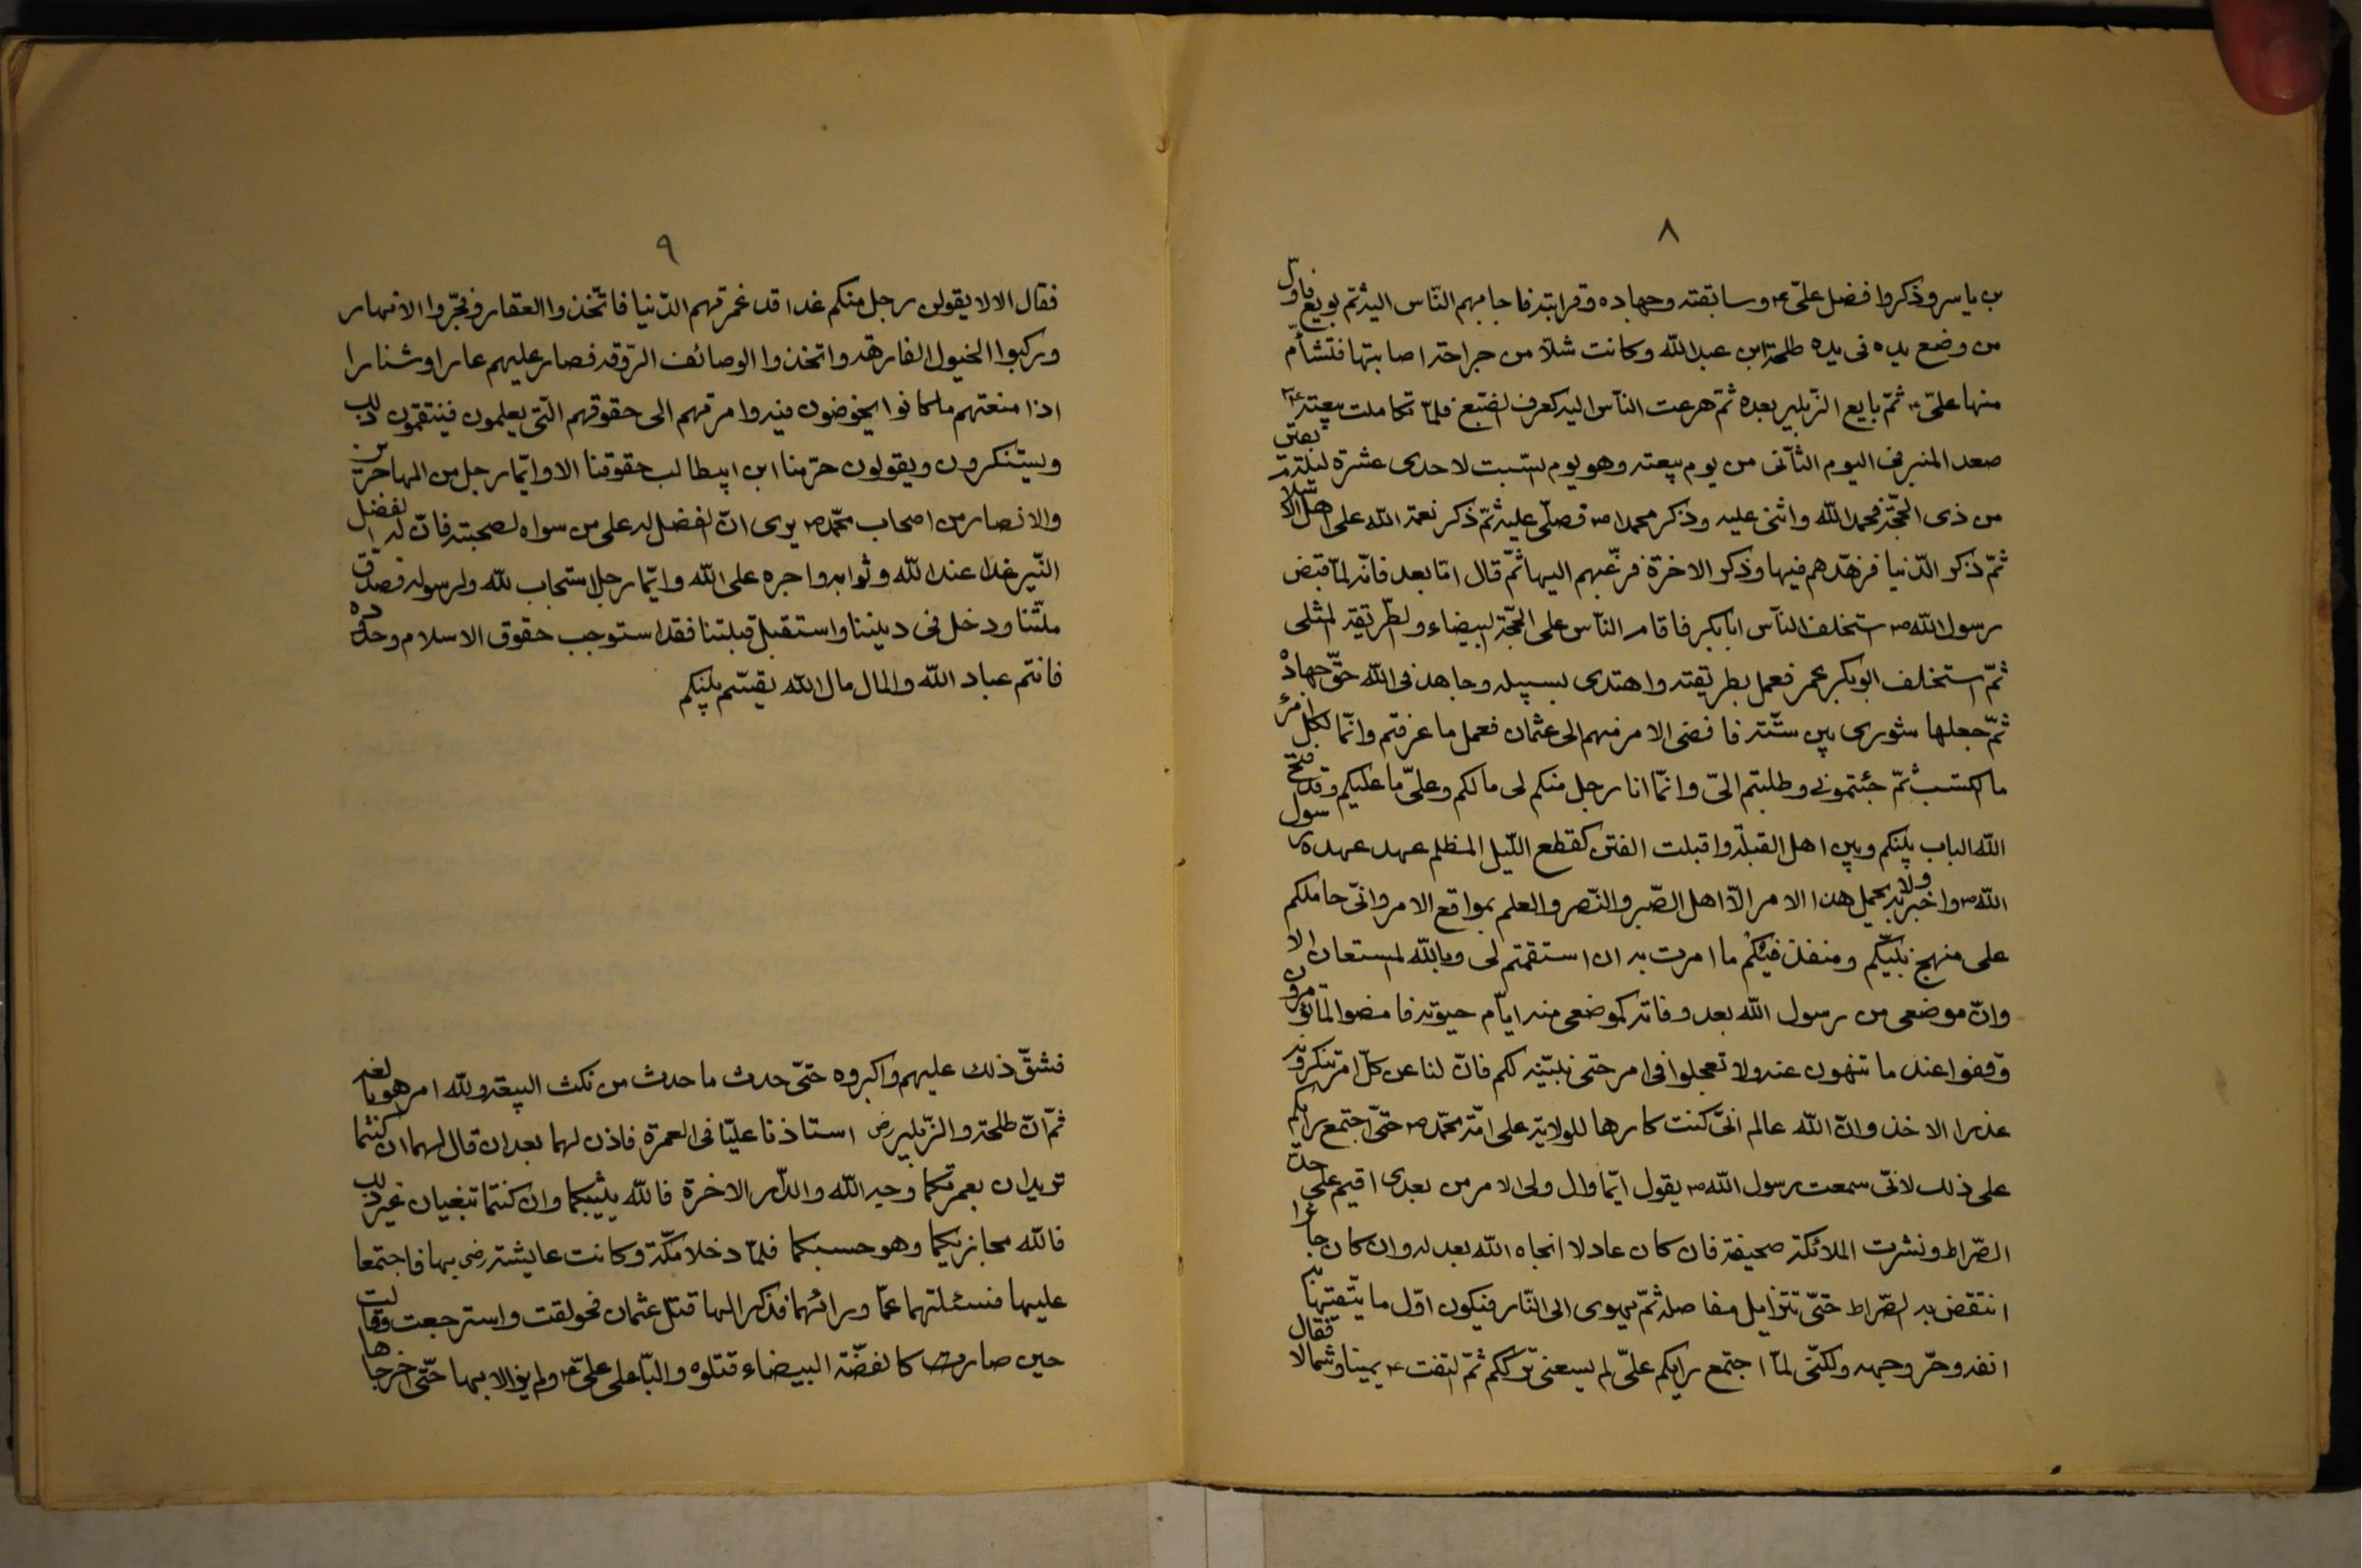 ٨
بن ياسر وذكروا فضل علىّ ع وسابقته وجهاده وقرابته فاجابهم النّاس اليه ثمّ بويع فاوّل
من وضع يده فى يده طلحة ابن عبد الله وكانت شلّا من جراحة اصابتها فتشأم
منها علىّ ع ثمّ بايع الزّبير بعده ثمّ هرعت النّاس اليه كعرف لضّبع فلمّا تكاملت بيعته ع
صعد المنبر فى اليوم الثّانى من يوم بيعته وهو يوم لسّبت لاحدى عشرة ليلة بقين
من ذى الحجّة فحمد الله واثنى عليه وذكر محمدا ص فصلّى عليه ثمّ ذكر نعمة الله على اهل الاسلا
ثمّ ذكر الدّنيا فزهّدهم فيها وذكر الاخرة فرغّبهم اليها ثمّ قال امّا بعد فانّه لمّا قبض
رسول الله ص ستخلف النّاس ابابكر فاقام النّاس على المحجّة لبيضاء ولطّريقة لمثلى
ثمّ استخلف ابوبكر عمر فعمل بطريقته واهتدى بسبيله وجاهد فى الله حقّ جهاده
ثمّ جعلها شورى بين ستّة فافضى الامر منهم الى عثمان فعمل ما عرفتم وانّما لكل امرء
ما اكتسب ثمّ جئتمونى وطلبتم الىّ وانّما انا رجل منكم لى مالكم وعلىّ ما عليكم وقد فتح
الله الباب بينكم وبين اهل القبلة واقبلت الفتن كقطع اللّيل المظلم عهد عهده رسول
الله ص واخبرنيه ولا يحمل هذا الامر الّا اهل الصّبر والنّصر والعلم بمواقع الامر وانّى حاملكم
على منهج نبيّكم ومنفذ فيكم ما امرت به ان استقمتم لى وبالله لمستعان الا
وانّ موضعى من رسول الله بعد وفاته كموضعى منه ايّام حيوته فامضوا لما تؤمرون
وقفوا عند ما تنهون عنه ولا تعجلوا فى امر حتى نبيّنه لكم فانّ لنا عن كلّ امر تنكرونه
عذرا الا خذ وانّ الله عالم انّى كنت كارها للولاية على امّة محمّد ص حتّى اجتمع رايكم
على ذلك لانّى سمعت رسول الله ص يقول ايّما وال ولى الامر من بعدى اقيم على حدّ
الصّراط ونشرت الملائكة صحيفة فان كان عادلا انجاه الله بعدله وان كان جائرا
انتقض به لصّراط حتّى تتزايل مفاصله ثمّ يهوى الى النّار فيكون اوّل ما يتّقيها به
انفه وحرّ وجهه ولكنّى لمّا اجتمع رايكم علىّ لم يسعنى ترككم ثمّ لتفت ع يمينا وشمالا فقال
٩
فقال الا لا يقولن رجل منكم غدا قد غمرتهم الدّنيا فاتّخذوا العقار وفجّروا الانهار
وركبوا الخيول الفارهة واتخذوا الوصائف الرّوقة فصار عليهم عارا وشنارا
اذا منعتهم ما كانوا يخوضون فيه وامرتهم الى حقوقهم الّتى يعلمون فينتقمون ذلك
ويستنكرون ويقولون حرّمنا ابن ابيطالب حقوقنا الا وايّما رجل من المهاجرين
والانصار من اصحاب محمّد ص يرى انّ لفضل له على من سواه لصحبته فانّ له الفضل
النّير غدا عند الله وثوابه واجره على الله وايّما رجل استجاب لله ولرسوله فصدّق
ملّتنا ودخل فى ديننا واستقبل قبلتنا فقد استوجب حقوق الاسلام وحدوده
فانتم عباد الله والمال مال الله يقسّم بينكم
فشقّ ذلك عليهم واكبروه حتّى حدث ما حدث من نكث البيعة ولله امر هو بالغه
ثمّ انّ طلحة والزّبير رض استاذنا عليّا فى العمرة فاذن لهما بعد ان قال لهما ان كنتما
تريدان بعمرتكما وجه الله والدّار الاخرة فالله يثيبكما وان كنتما تبغيان غير ذلك
فالله مجازيكما وهو حسبكما فلمّا دخلا مكّة وكانت عايشة رضى بها فاجتمعا
عليها فسئلتهما عمّا ورائهما فذكرا لها قتل عثمان فحولقت واسترجعت وقالت
حين صارت كالفضّة البيضاء قتلوه والبّا على علىّ ع ولم يزالا بها حتّى اخرجاها